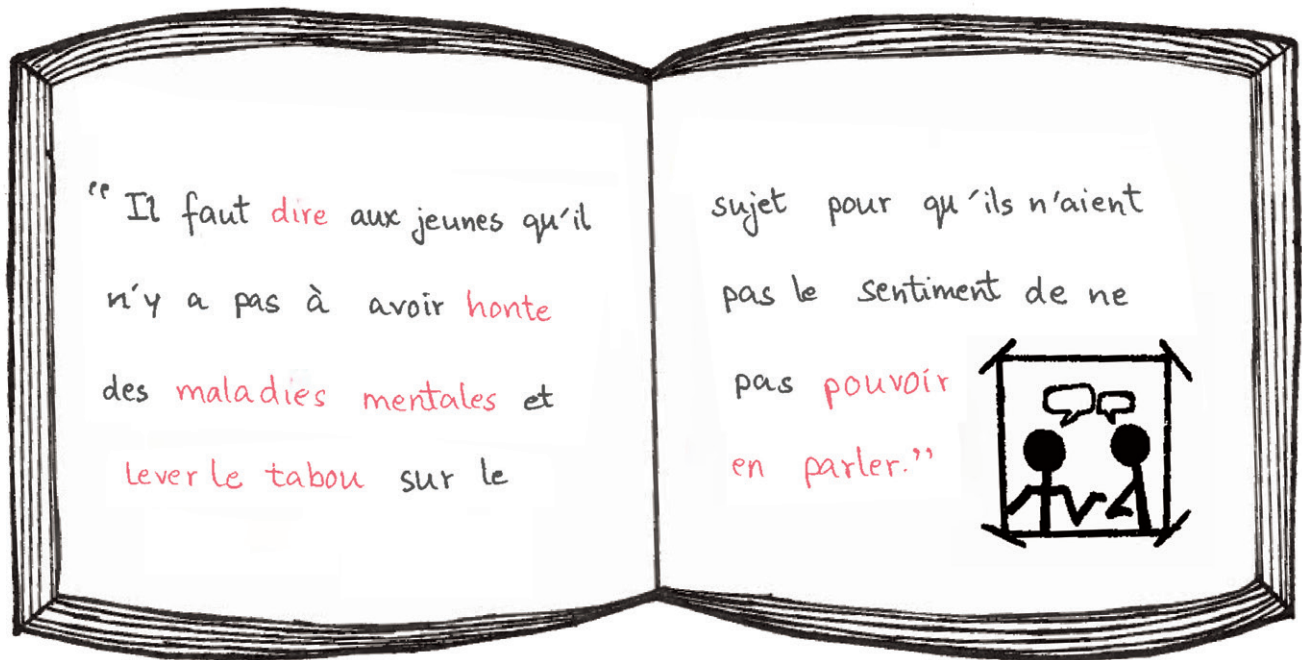 “Il faut dire aux jeunes qu'il
n'y a pas à avoir honte
des maladies mentales et
lever le tabou sur le
sujet pour qu'ils n'aient
pas le sentiment de ne
pas pouvoir
en parler.”